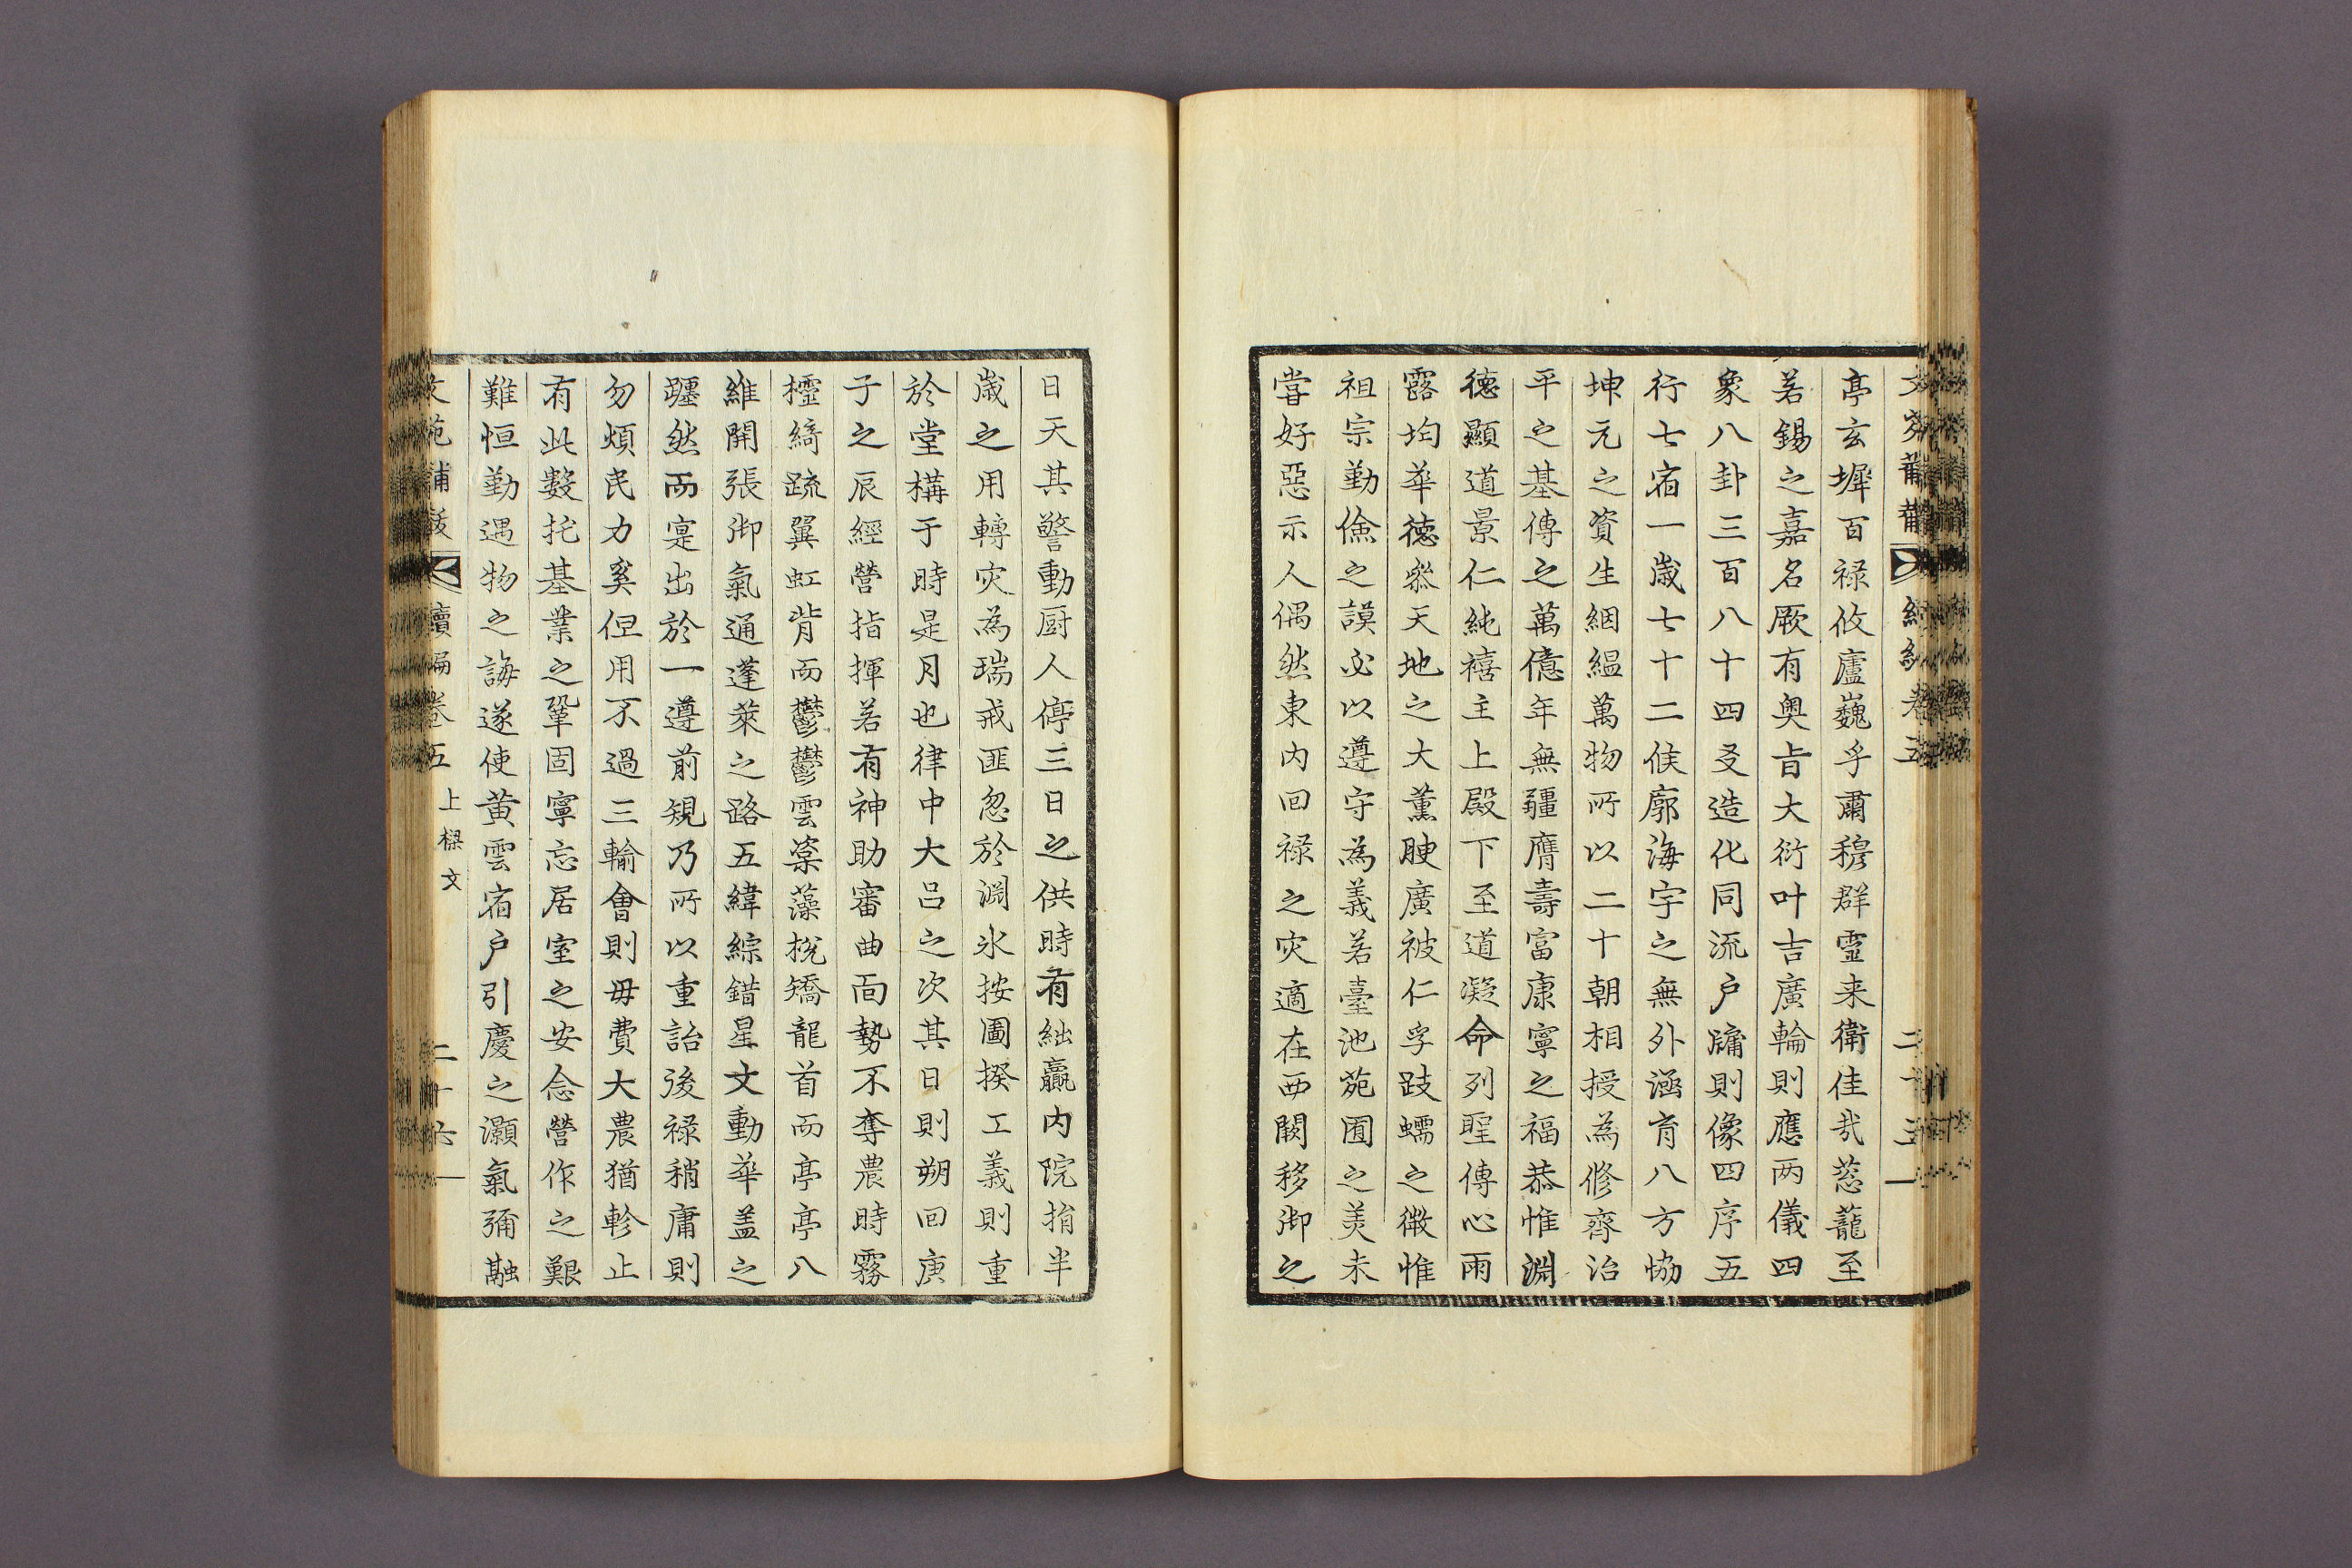 亭玄墀百祿攸廬巍乎肅穆群靈来衛佳㦲蔥蘢至
若錫之嘉名厥有奧旨大衍叶吉廣輪則應两儀四
象八卦三百八十四爻造化同流户牖則像四序五
行七宿一歲七十二候廓海宇之無外涵育八方協
坤元之資生絪縕萬物所以二十朝相授為修齊治
平之基傳之萬億年無疆膺壽富康寧之福恭惟淵
德顯道景仁純禧主上殿下至道凝命列聖傳心雨
露均華德叅天地之大薰腴廣被仁孚跂蠕之微惟
祖宗勤儉之謨必以遵守為義若臺池苑囿之美未
甞好惡示人偶然東内回祿之灾適在西闕移御之
日天其警動厨人停三日之供時有絀贏内院捐半
歲之用轉灾為瑞戒匪忽於淵氷按圖揆工義則重
於堂構于時是月也律中大呂之次其日則朔回庚
子之辰經營指揮若有神助審曲面勢不奪農時霧
櫺綺疏翼虹背而鬱鬱雲楶藻梲矯龍首而亭亭八
維開張御氣通蓬萊之路五緯綜錯星文動華盖之
躔然而寔出於一遵前規乃所以重詒後祿稍庸則
勿煩民力奚但用不過三輸會則毋費大農猶軫止
有此數托基業之鞏固寧忘居室之安念營作之艱
難恒勤遇物之誨遂使黄雲宿户引慶之灝氣彌融
文苑黼黻 續編卷五 上樑文 二十六